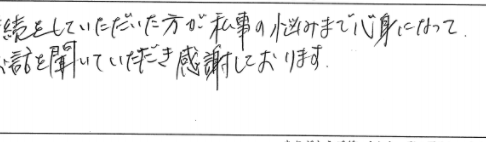 続をしていただいた方が私事の悩みまで心身になって
話を聞いていただき感謝しております。